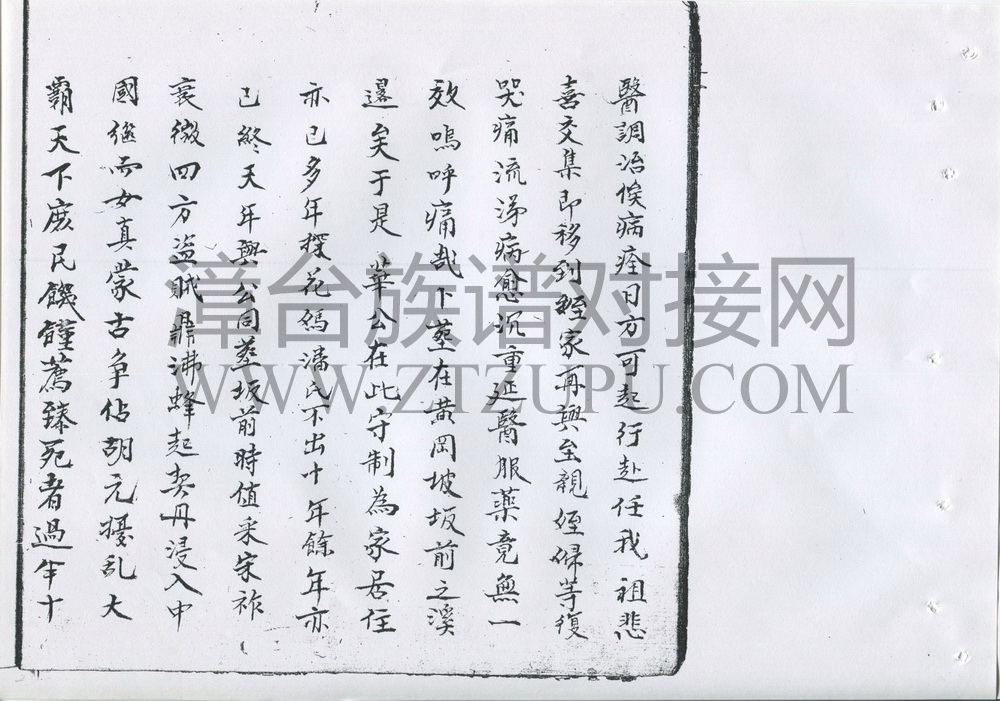 醫調治俟病痊日方可起行赴任我祖悲
喜交集即移到姪家再興至親姪婦等復
哭痛流涕病愈沉重延醫服藥竟無一
效嗚呼痛哉下塟在黄岡坡坂前之溪
邊矣于是華公在此守制為家居住
亦已多年探花媽潘氏不出十年餘年亦
已終天年與公同塟坂前時值宋祚
衰微四方盜賊鼎沸蜂起契丹浸入中
國繼而女真蒙古争佔胡元擾乱大
霸天下庶民饑饉薦臻死者過半十
漳台族谱对接网
WWW.ZTZUPU.COM